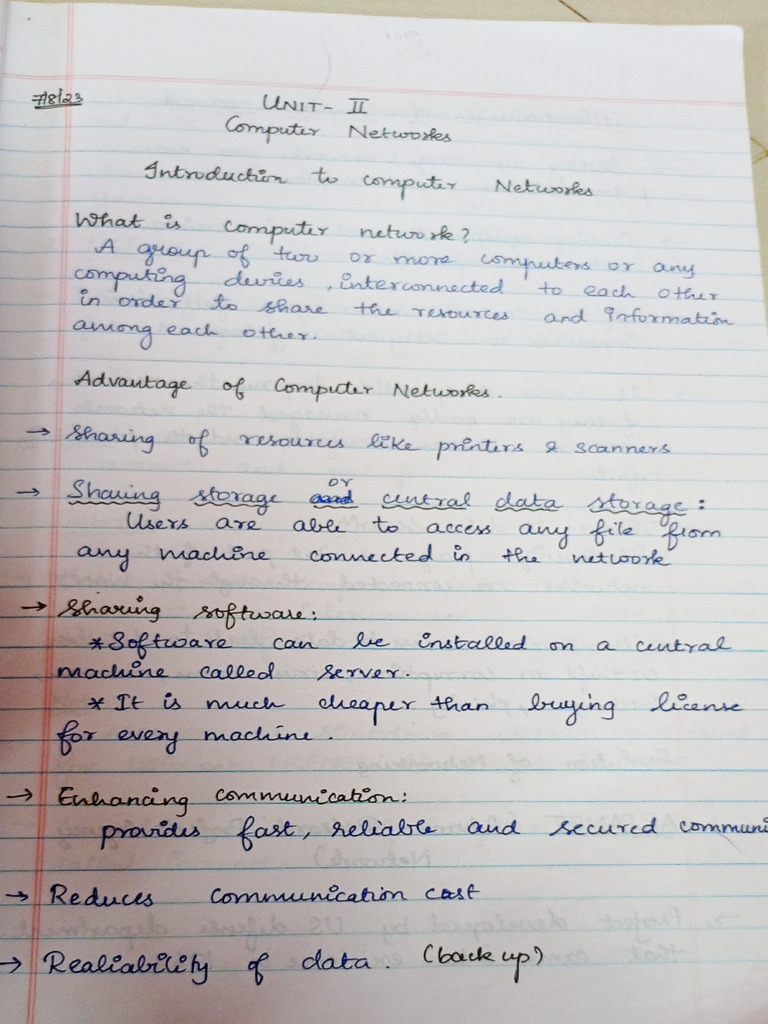 7/8/23
UNIT - II
Computer Networks
Introduction to computer Networks
What is computer network?
A group of two or more computers or any
computing devices, interconnected to each other
in order to share the resources and information
among each other.
Advantage of Computer Networks.
→ Sharing of resources like printers & scanners
or
→ Sharing storage and central data storage:
Users are able to access any file from
any machine connected in the network
→ Sharing software:
* Software can be installed on a central
machine called server.
* It is much cheaper than buying license
for every machine.
→ Enhancing communication:
provides fast, reliable and secured communi
→ Reduces communication cost
→ Realiability of data. (back up)